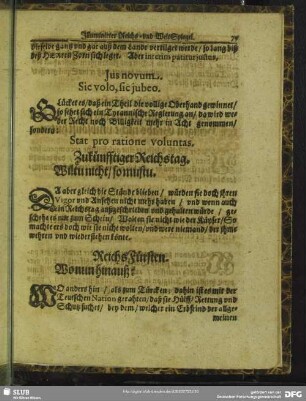 Illuminirter Reichs- und Welt-Spiegel. 79
dieselbe gantz und gar auß dem Lande vertilget werde / so lang biß
deß HErren Zorn sich leget. Aber interim patitur justus.
Jus novum.
Sic volo, sic jubeo.
Glücket es / daß ein Theil die völlige Oberhand gewinnet /
so setzet sich ein Tyrannische Regierung an / da wird we-
der Recht noch Billigkeit mehr in Acht genommen /
sondern:
Stat pro ratione voluntas.
Zukünfftiger Reichstag.
Wiltu nicht / so mustu.
Da aber gleich die Stände blieben / würden sie doch ihren
Vigor und Ansehen nicht mehr haben / und wenn auch
ein Reichstag außgeschrieben und gehalten würde / ge-
schehe es nur zum Schein / Wolen sie nicht wie der Käyser / So
machte ers doch wie sie nicht wolten / und were niemand / der ihms
wehren und wiederstehen könte.
Reichs Fürsten.
Wo nun hinauß?
WO anders hin / als zum Türcken / dahin ist es mit der
Teutschen Nation gerahten / daß sie Hülff / Rettung und
Schutz suchet / bey dem / welcher ein Erbfeind der allge-
meinen
SLUB
Wir führen Wissen.
gefördert von der
Deutschen Forschungsgemeinschaft
DFG